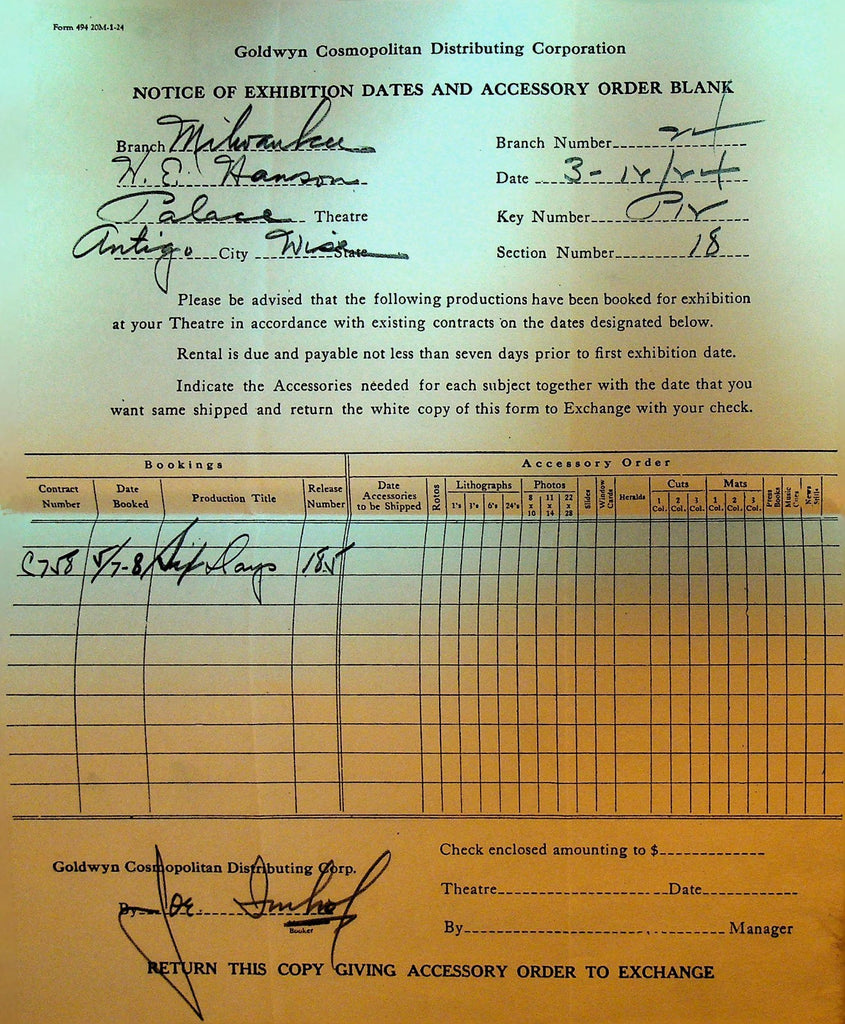 Form 494 20M-1-24
Goldwyn Cosmopolitan Distributing Corporation
NOTICE OF EXHIBITION DATES AND ACCESSORY ORDER BLANK
Branch Milwaukee Branch Number
H. E. Hanson Date 3-12/24
Palace Theatre Key Number
Antigo City Wisc State Section Number 18
Please be advised that the following productions have been booked for exhibition
at your Theatre in accordance with existing contracts on the dates designated below.
Rental is due and payable not less than seven days prior to first exhibition date.
Indicate the Accessories needed for each subject together with the date that you
want same shipped and return the white copy of this form to Exchange with your check.
Bookings Accessory Order
Contract Number Date Booked Production Title Release Number Date Accessories to be Shipped Rotos Lithographs 1's 3's 6's 24's Photos 8 x 10 11 x 14 22 x 28 Slides Window Cards Heralds Cuts 1 Col. 2 Col. 3 Col. Mats 1 Col. 2 Col. 3 Col. Press Books Music Cues News Stills
C758 5/7-8 Six Days 185
Check enclosed amounting to $
Goldwyn Cosmopolitan Distributing Corp.
Theatre Date
By Joe Imhof
Booker
By Manager
RETURN THIS COPY GIVING ACCESSORY ORDER TO EXCHANGE